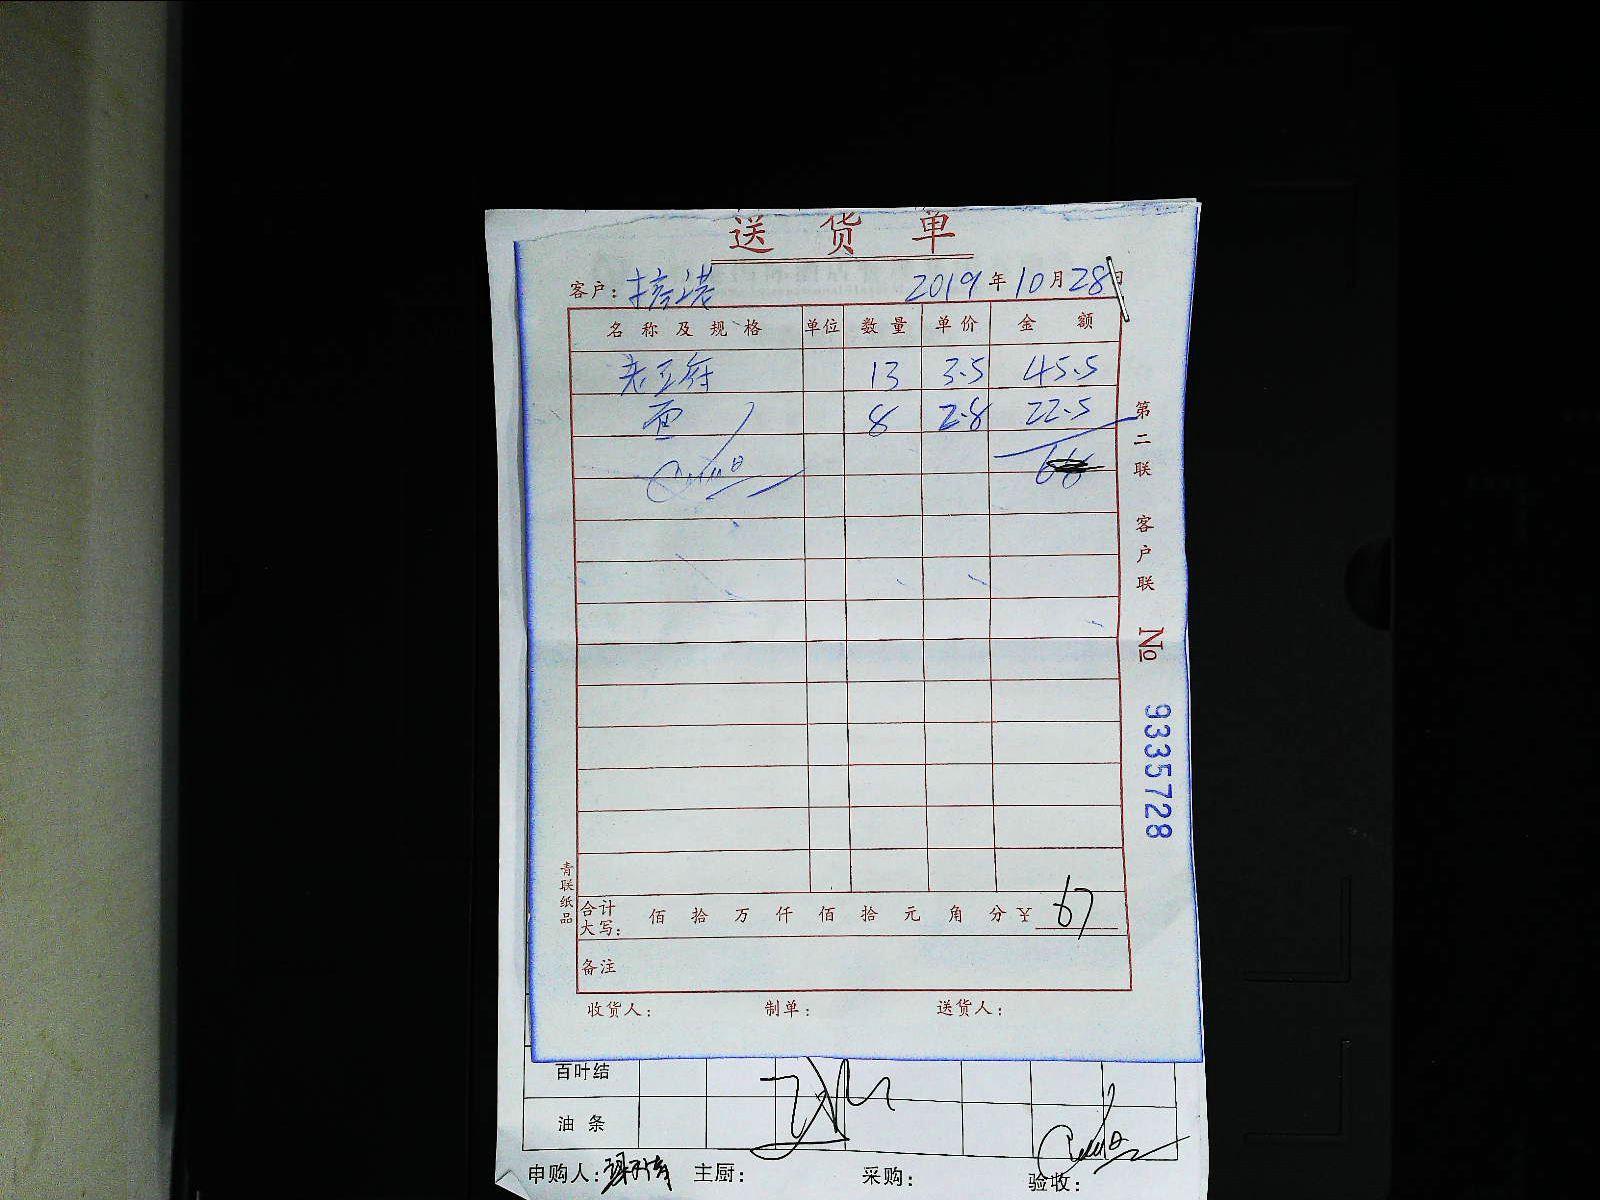 送货单
客户: 2019年10月28日
名称及规格 单位 数量 单价 金额
老豆腐 13 3.5 45.5
面 8 2.8 22.5
第二联 客户联
№ 9335728
青联纸品
合计大写: 佰 拾 万 仟 佰 拾 元 角 分 ¥ 67
备注
收货人: 制单: 送货人:
百叶结
油条
申购人: 主厨: 采购: 验收: